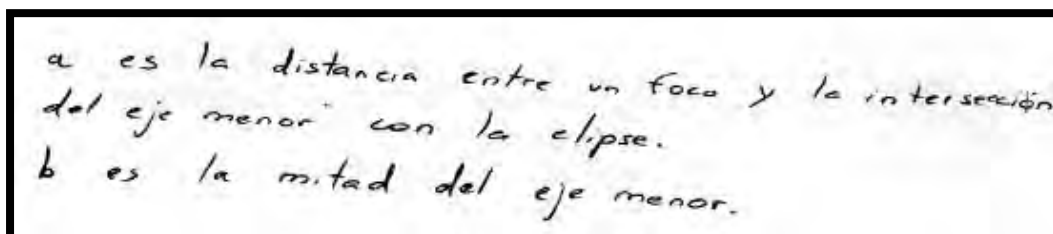 a es la distancia entre un foco y la intersección
del eje menor con la elipse.
b es la mitad del eje menor.